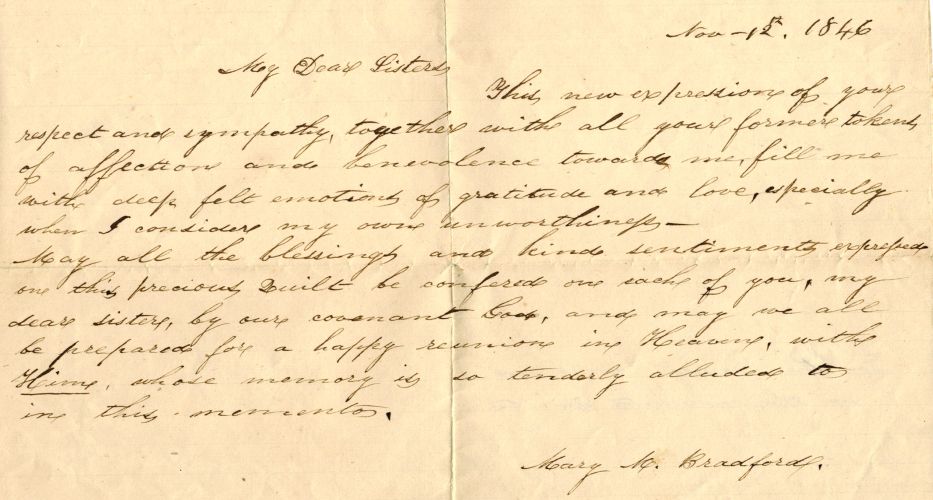 Nov - 1st. 1846
My Dear Sisters
This new expression of your
respect and sympathy, together with all your former tokens
of affection and benevolence towards me, fill me
with deep felt emotions of gratitude and love, especially
when I consider my own unworthiness -
May all the blessings and kind sentiments expressed
on this precious Quilt be confered on each of you, my
dear sisters, by our covenant God, and may we all
be prepared for a happy reunion in Heaven, with
Him, whose memory is so tenderly alluded to
in this memento.
Mary M. Bradford.